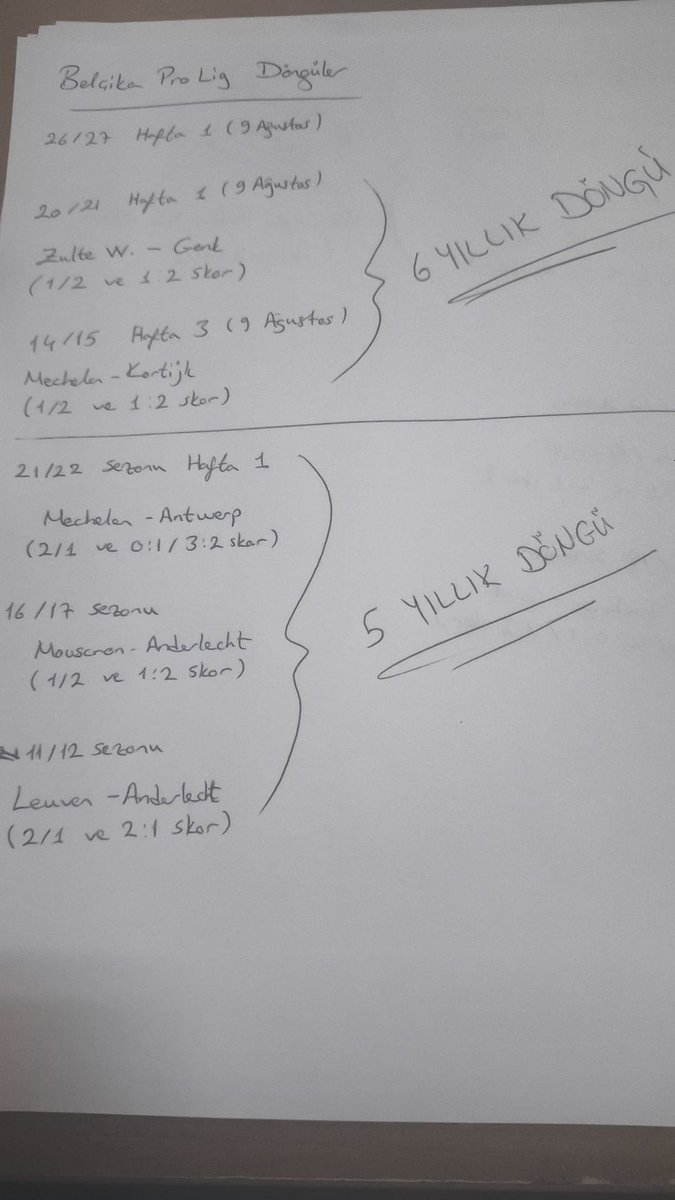 Belçika Pro Lig Döngüler
26/27 Hafta 1 (9 Ağustos)
20/21 Hafta 1 (9 Ağustos)
Zulte W. - Genk
(1/2 ve 1 2 skor)
14/15 Hafta 3 (9 Ağustos)
Mechelen - Kortijk
(1/2 ve 1:2 skor)
6 YILLIK DÖNGÜ
21/22 sezonu Hafta 1
Mechelen - Antwerp
(2/1 ve 0:1 / 3:2 skor)
16/17 sezonu
Mouscron - Anderlecht
(1/2 ve 1:2 skor)
11/12 sezonu
Leuven - Anderlecht
(2/1 ve 2:1 skor)
5 YILLIK DÖNGÜ